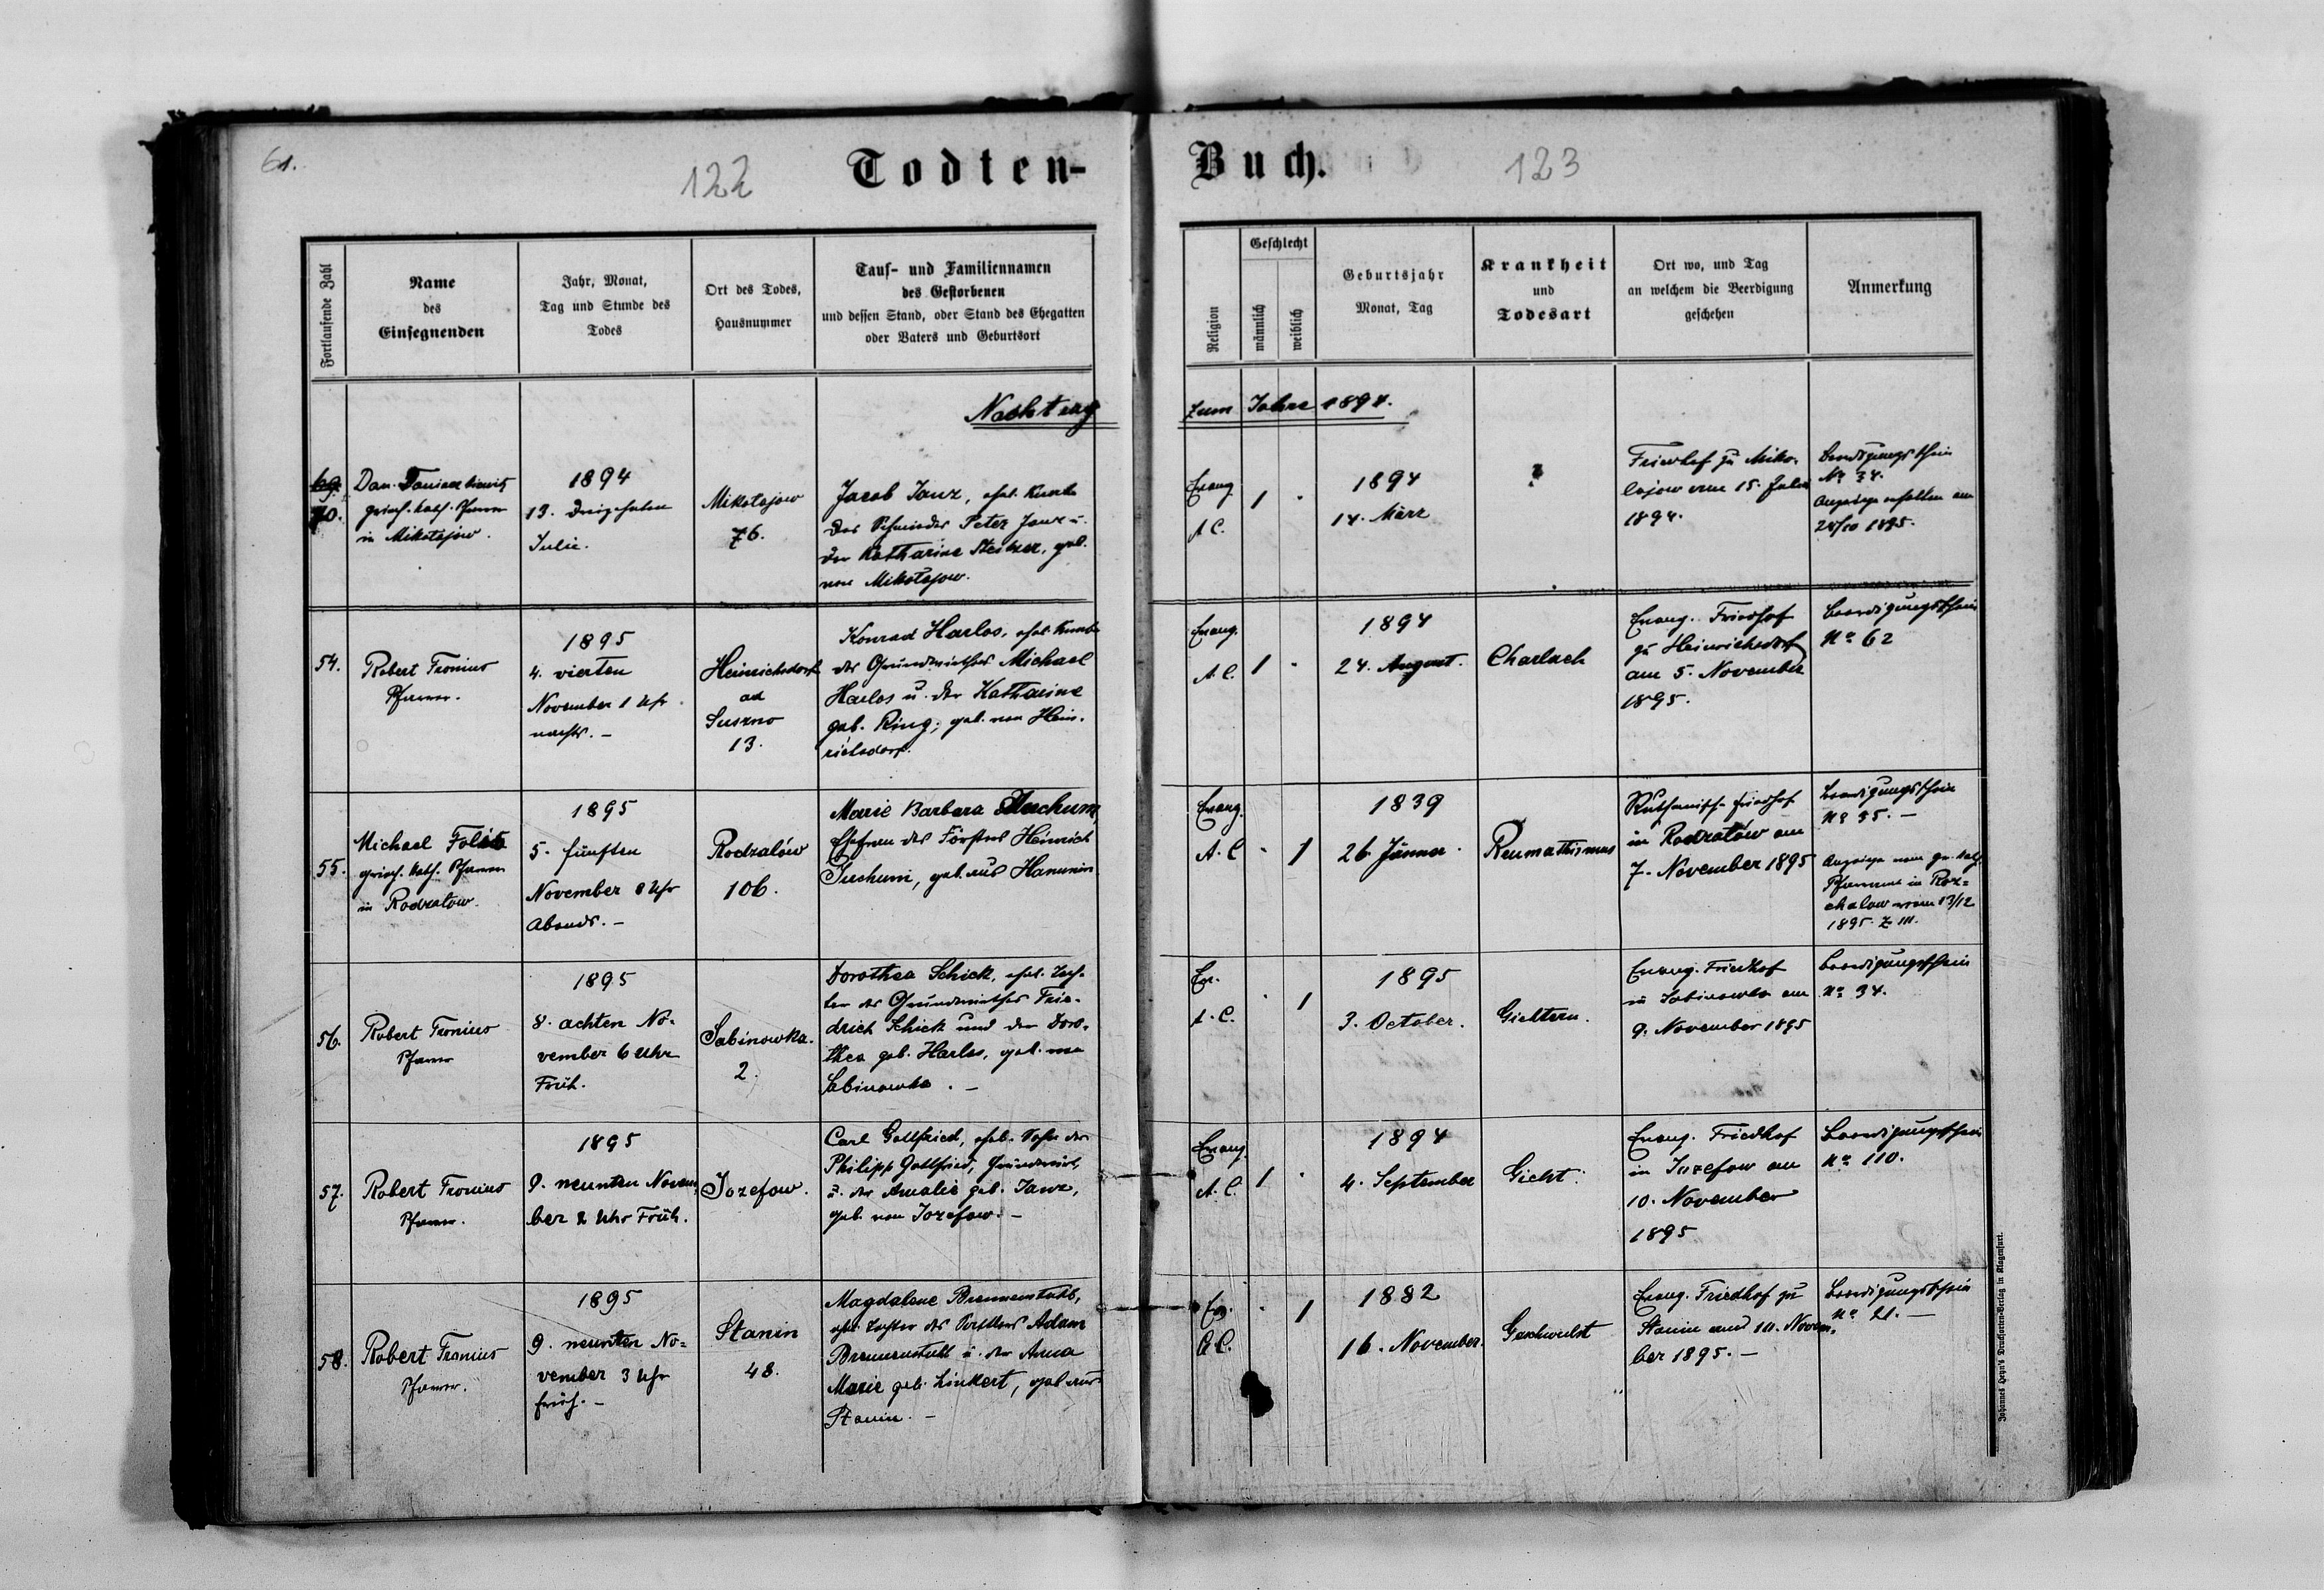 61.
122
Todten-
Buch.
123
Fortlaufende Zahl
Name
des
Einsegnenden
Jahr, Monat,
Tag und Stunde des
Todes
Ort des Todes,
Hausnummer
Tauf- und Familiennamen
des Gestorbenen
und dessen Stand, oder Stand des Ehegatten
oder Vaters und Geburtsort
Religion
Geschlecht
männlich
weiblich
Geburtsjahr
Monat, Tag
Krankheit
und
Todesart
Ort wo, und Tag
an welchem die Beerdigung
geschehen
Anmerkung
Nachtrag
zum Jahre 1894.
69.
70.
Dan.
griech. kath. Pfarrer
in Mikołajow.
1894
13. dreizehnten
Julie.
Mikołajow
76.
Jacob Janz, ehel. Knabe
des Schmiedes Peter Janz u.
der Katharine Steitzer, geb.
von Mikołajow.
Evang.
A.C.
1
1894
14. März
?
Friedhof zu Miko-
lajow am 15. Julie
1894.
Beerdigungsschein
No 34.
Anzeige erhalten am
28/10 1895.
54.
Robert Fronius
Pfarrer.
1895
4. vierten
November 1 Uhr
nachts. –
Heinrichsdorf
ad
Suszno
13.
Konrad Harlos, ehel. Knabe
des Grundwirthes Michael
Harlos u. der Katharine
geb. Ring; geb. von Hein-
richsdorf.
Evang.
A.C.
1
1894
24. August.
Charlach
Evang. Friedhof
zu Heinrichsdorf
am 5. November
1895.
Beerdigungsschein
No 62
55.
Michael
griech. kath. Pfarrer
in Rodzalow.
1895
5. fünften
November 8 Uhr
Abends. –
Rodzalów
106.
Marie Barbara
Ehefrau des Försters Heinrich
geb. aus Hanunin
Evang.
A.C
1
1839
26. Jänner.
Reumathismus
Ruthenische Friedhof
in Rodzalów am
7. November 1895
Beerdigungsschein
No 35. –
Anzeige vom gr. kath.
Pfarramt in Roz=
chalow vom 13/12
1895. Z 111.
56.
Robert Fronius
Pfarrer
1895
8. achten No-
vember 6 Uhr
Früh.
Sabinowka.
2.
Dorothea Schick, ehel. Toch-
ter des Grundwirthes Frie-
drich Schick und der Doro-
thea geb. Harlos, geb. von
Sabinowka. –
Ev.
A.C.
1
1895
3. October.
Gichtern.
Evang. Friedhof
in Sabinowka am
9. November 1895
Beerdigungsschein
No 34.
57.
Robert Fronius
Pfarrer.
1895
9. neunten Novem-
ber 2 Uhr Früh.
Jozefow.
Carl Gottfried, ehel. Sohn des
Philipp Gottfried, Grundwirt,
u. der Amalie geb. Janz,
geb. von Jozefow. –
Evang.
A.C.
1
1894
4. September
Gicht.
Evang. Friedhof
in Jozefow am
10. November
1895
Beerdigungsschein
No 110.
58.
Robert Fronius
Pfarrer.
1895
9. neunten No=
vember 3 Uhr
früh. –
Stanin
48.
Magdalene Brennenstuhl,
ehel. Tochter des Adam
Brennenstuhl u. der Anna
Marie geb. Linkert, geb. aus
Stanin. –
Ev.
A.C.
1
1882
16. November.
Geschwulst
Evang. Friedhof zu
Stanin am 10. Novem-
ber 1895. –
Beerdigungsschein
No 21. –
Johannes Heyn's Drucksorten-Verlag in Klagenfurt.